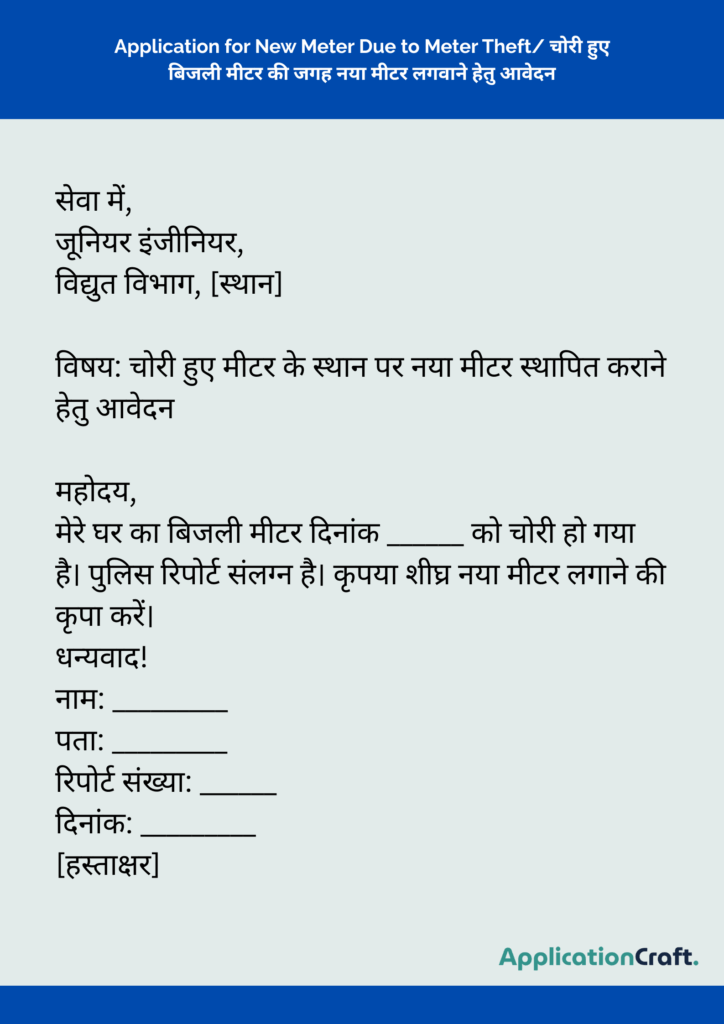 Application for New Meter Due to Meter Theft/ चोरी हुए
बिजली मीटर की जगह नया मीटर लगवाने हेतु आवेदन
सेवा में,
जूनियर इंजीनियर,
विद्युत विभाग, [स्थान]
विषय: चोरी हुए मीटर के स्थान पर नया मीटर स्थापित कराने
हेतु आवेदन
महोदय,
मेरे घर का बिजली मीटर दिनांक ______ को चोरी हो गया
है। पुलिस रिपोर्ट संलग्न है। कृपया शीघ्र नया मीटर लगाने की
कृपा करें।
धन्यवाद!
नाम: _________
पता: _________
रिपोर्ट संख्या: ______
दिनांक: _________
[हस्ताक्षर]
ApplicationCraft.